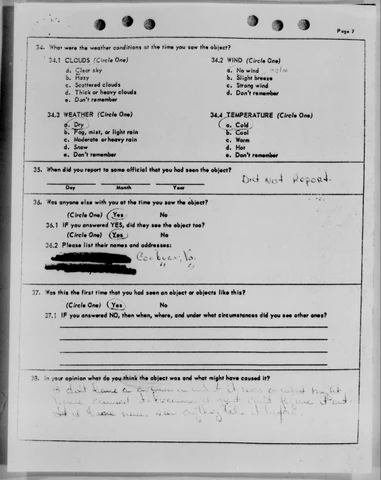 Page 7
34. What were the weather conditions at the time you saw the object?
34.1 CLOUDS (Circle One) 34.2 WIND (Circle One)
a. Clear sky a. No wind
b. Hazy b. Slight breeze
c. Scattered clouds c. Strong wind
d. Thick or heavy clouds d. Don't remember
e. Don't remember
34.3 WEATHER (Circle One) 34.4 TEMPERATURE (Circle One)
a. Dry a. Cold
b. Fog, mist, or light rain b. Cool
c. Moderate or heavy rain c. Warm
d. Snow d. Hot
e. Don't remember e. Don't remember
35. When did you report to some official that you had seen the object?
Did Not Report.
Day Month Year
36. Was anyone else with you at the time you saw the object?
(Circle One) Yes No
36.1 IF you answered YES, did they see the object too?
(Circle One) Yes No
36.2 Please list their names and addresses:
37. Was this the first time that you had seen an object or objects like this?
(Circle One) Yes No
37.1 IF you answered NO, then when, where, and under what circumstances did you see other ones?
38. In your opinion what do you think the object was and what might have caused it?